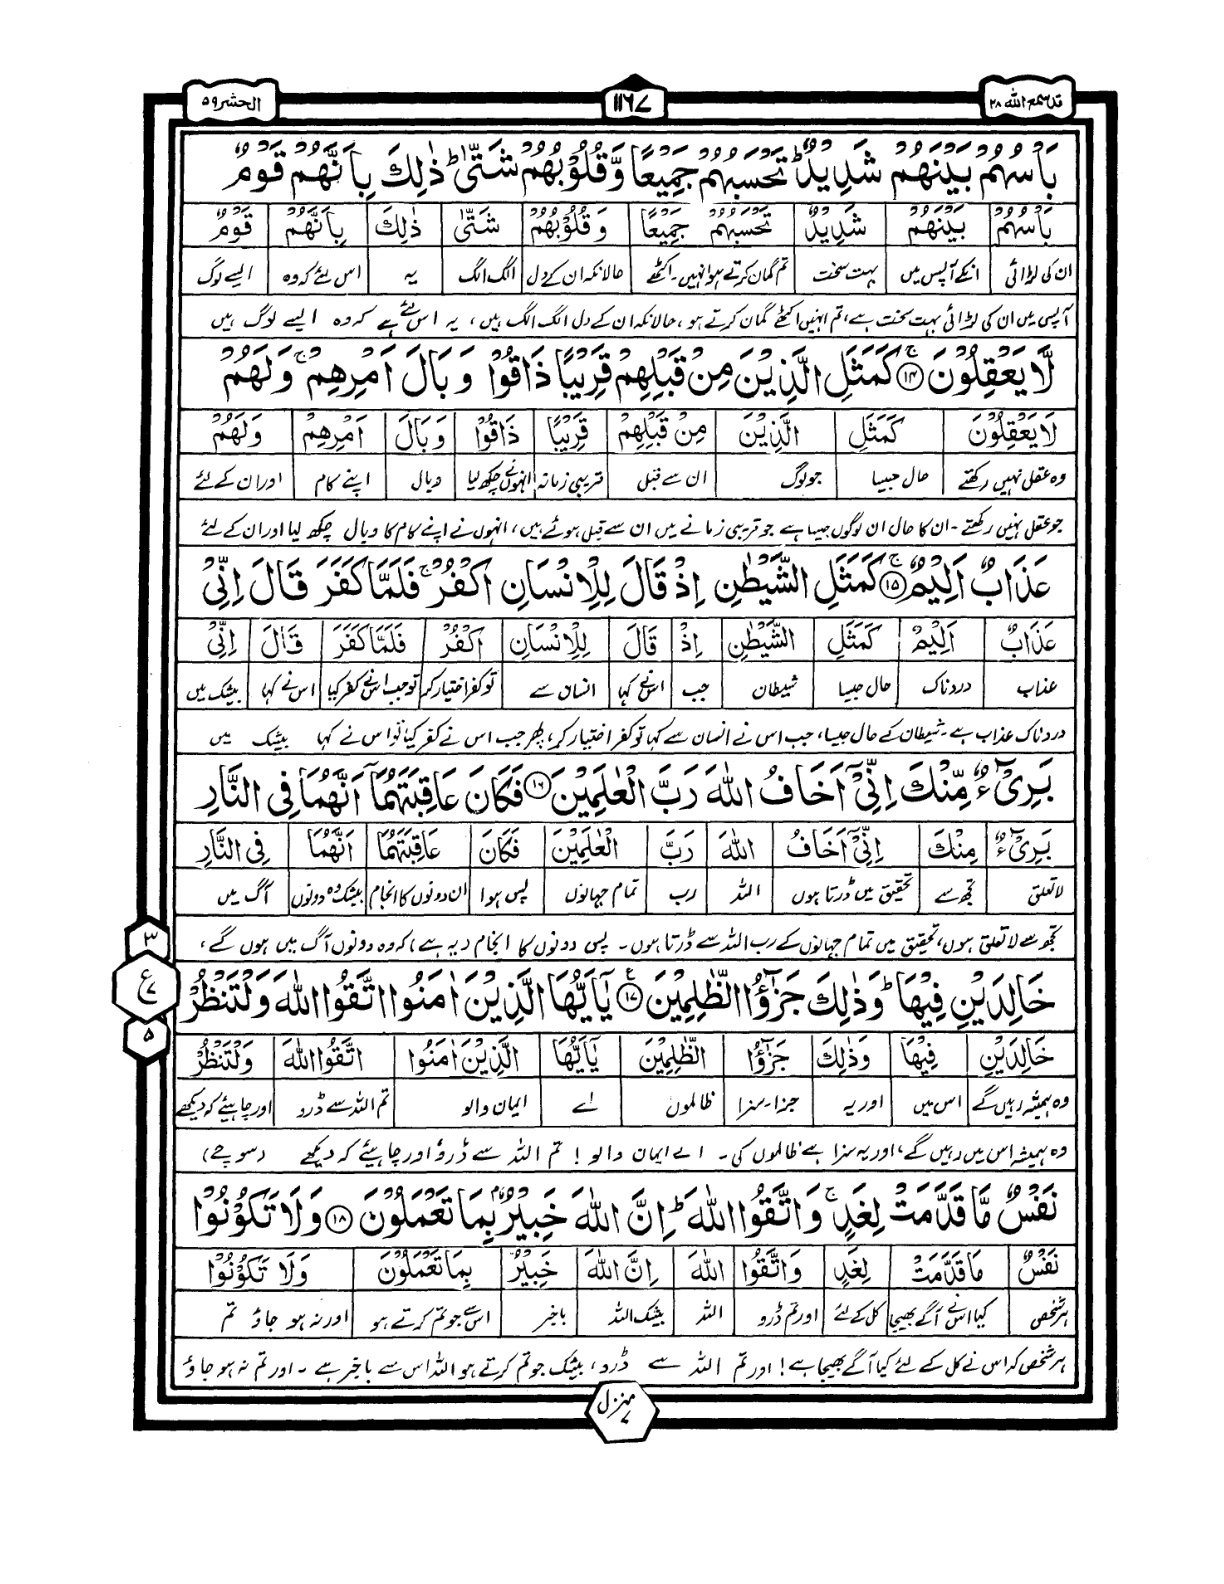 قد سمع الله ٢٨
١١٦٧
الحشر ٥٩
بَاْسُهُمْ بَيْنَهُمْ شَدِيْدٌ ؕ تَحْسَبُهُمْ جَمِيْعًا وَّقُلُوْبُهُمْ شَتّٰى ؕ ذٰلِكَ بِاَنَّهُمْ قَوْمٌ
بَاْسُهُمْ بَيْنَهُمْ شَدِيْدٌ تَحْسَبُهُمْ جَمِيْعًا وَقُلُوْبُهُمْ شَتّٰى ذٰلِكَ بِاَنَّهُمْ قَوْمٌ
ان کی لڑائی انکے آپس میں بہت سخت تم گمان کرتے ہو انہیں۔ اکٹھے حالانکہ ان کے دل الگ الگ یہ اس لئے کہ وہ ایسے لوگ
آپس میں ان کی لڑائی بہت سخت ہے، تم انہیں اکٹھے گمان کرتے ہو، حالانکہ ان کے دل الگ الگ ہیں، یہ اس لئے ہے کہ وہ ایسے لوگ ہیں
لَّا يَعْقِلُوْنَ ۚ ﴿١٤﴾ كَمَثَلِ الَّذِيْنَ مِنْ قَبْلِهِمْ قَرِيْبًا ذَاقُوْا وَبَالَ اَمْرِهِمْ ۚ وَلَهُمْ
لَا يَعْقِلُوْنَ كَمَثَلِ الَّذِيْنَ مِنْ قَبْلِهِمْ قَرِيْبًا ذَاقُوْا وَبَالَ اَمْرِهِمْ وَلَهُمْ
وہ عقل نہیں رکھتے حال جیسا جو لوگ ان سے قبل قریبی زمانہ انہوں نے چکھ لیا وبال اپنے کام اور ان کے لئے
جو عقل نہیں رکھتے۔ ان کا حال ان لوگوں جیسا ہے جو قریبی زمانے میں ان سے قبل ہوئے ہیں، انہوں نے اپنے کام کا وبال چکھ لیا اور ان کے لئے
عَذَابٌ اَلِيْمٌ ۚ ﴿١٥﴾ كَمَثَلِ الشَّيْطٰنِ اِذْ قَالَ لِلْاِنْسَانِ اكْفُرْ ۚ فَلَمَّا كَفَرَ قَالَ اِنِّيْ
عَذَابٌ اَلِيْمٌ كَمَثَلِ الشَّيْطٰنِ اِذْ قَالَ لِلْاِنْسَانِ اكْفُرْ فَلَمَّا كَفَرَ قَالَ اِنِّيْ
عذاب دردناک حال جیسا شیطان جب اس نے کہا انسان سے تو کفر اختیار کر تو جب اس نے کفر کیا اس نے کہا بیشک میں
دردناک عذاب ہے۔ شیطان کے حال جیسا، جب اس نے انسان سے کہا تو کفر اختیار کر، پھر جب اس نے کفر کیا تو اس نے کہا بیشک میں
بَرِيْٓءٌ مِّنْكَ اِنِّيْٓ اَخَافُ اللّٰهَ رَبَّ الْعٰلَمِيْنَ ﴿١٦﴾ فَكَانَ عَاقِبَتَهُمَآ اَنَّهُمَا فِي النَّارِ
بَرِيْٓءٌ مِنْكَ اِنِّيْٓ اَخَافُ اللّٰهَ رَبَّ الْعٰلَمِيْنَ فَكَانَ عَاقِبَتَهُمَا اَنَّهُمَا فِي النَّارِ
لا تعلق تجھ سے تحقیق میں ڈرتا ہوں اللہ رب تمام جہانوں پس ہوا ان دونوں کا انجام بیشک وہ دونوں آگ میں
تجھ سے لا تعلق ہوں، تحقیق میں تمام جہانوں کے رب اللہ سے ڈرتا ہوں۔ پس دونوں کا انجام یہ ہے، کہ وہ دونوں آگ میں ہوں گے،
خَالِدَيْنِ فِيْهَا ؕ وَذٰلِكَ جَزٰٓؤُا الظّٰلِمِيْنَ ﴿١٧﴾ ع يٰٓاَيُّهَا الَّذِيْنَ اٰمَنُوا اتَّقُوا اللّٰهَ وَلْتَنْظُرْ
٣
ع ٧
٥
خَالِدَيْنِ فِيْهَا وَذٰلِكَ جَزٰٓؤُا الظّٰلِمِيْنَ يٰٓاَيُّهَا الَّذِيْنَ اٰمَنُوا اتَّقُوا اللّٰهَ وَلْتَنْظُرْ
وہ ہمیشہ رہیں گے اس میں اور یہ جزا۔ سزا ظالموں اے ایمان والو تم اللہ سے ڈرو اور چاہیئے کہ دیکھے
وہ ہمیشہ اس میں رہیں گے، اور یہ سزا ہے ظالموں کی۔ اے ایمان والو! تم اللہ سے ڈرو اور چاہیئے کہ دیکھے (سوچے)
نَفْسٌ مَّا قَدَّمَتْ لِغَدٍ ۚ وَاتَّقُوا اللّٰهَ ؕ اِنَّ اللّٰهَ خَبِيْرٌۢ بِمَا تَعْمَلُوْنَ ﴿١٨﴾ وَلَا تَكُوْنُوْا
نَفْسٌ مَا قَدَّمَتْ لِغَدٍ وَاتَّقُوا اللّٰهَ اِنَّ اللّٰهَ خَبِيْرٌ بِمَا تَعْمَلُوْنَ وَلَا تَكُوْنُوْا
ہر شخص کیا اس نے آگے بھیجا کل کے لئے اور تم ڈرو اللہ بیشک اللہ باخبر اس سے جو تم کرتے ہو اور نہ ہو جاؤ تم
ہر شخص کہ اس نے کل کے لئے کیا آگے بھیجا ہے! اور تم اللہ سے ڈرو، بیشک جو تم کرتے ہو اللہ اس سے باخبر ہے۔ اور تم نہ ہو جاؤ
منزل ٧